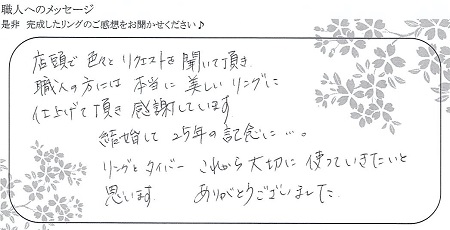 職人へのメッセージ
是非 完成したリングのご感想をお聞かせください♪
店頭で色々とリクエストを聞いて頂き
職人の方には本当に美しいリングに
仕上げて頂き感謝しています
結婚して25年の記念に…。
リングとタイバー これから大切に使っていきたいと
思います ありがとうございました